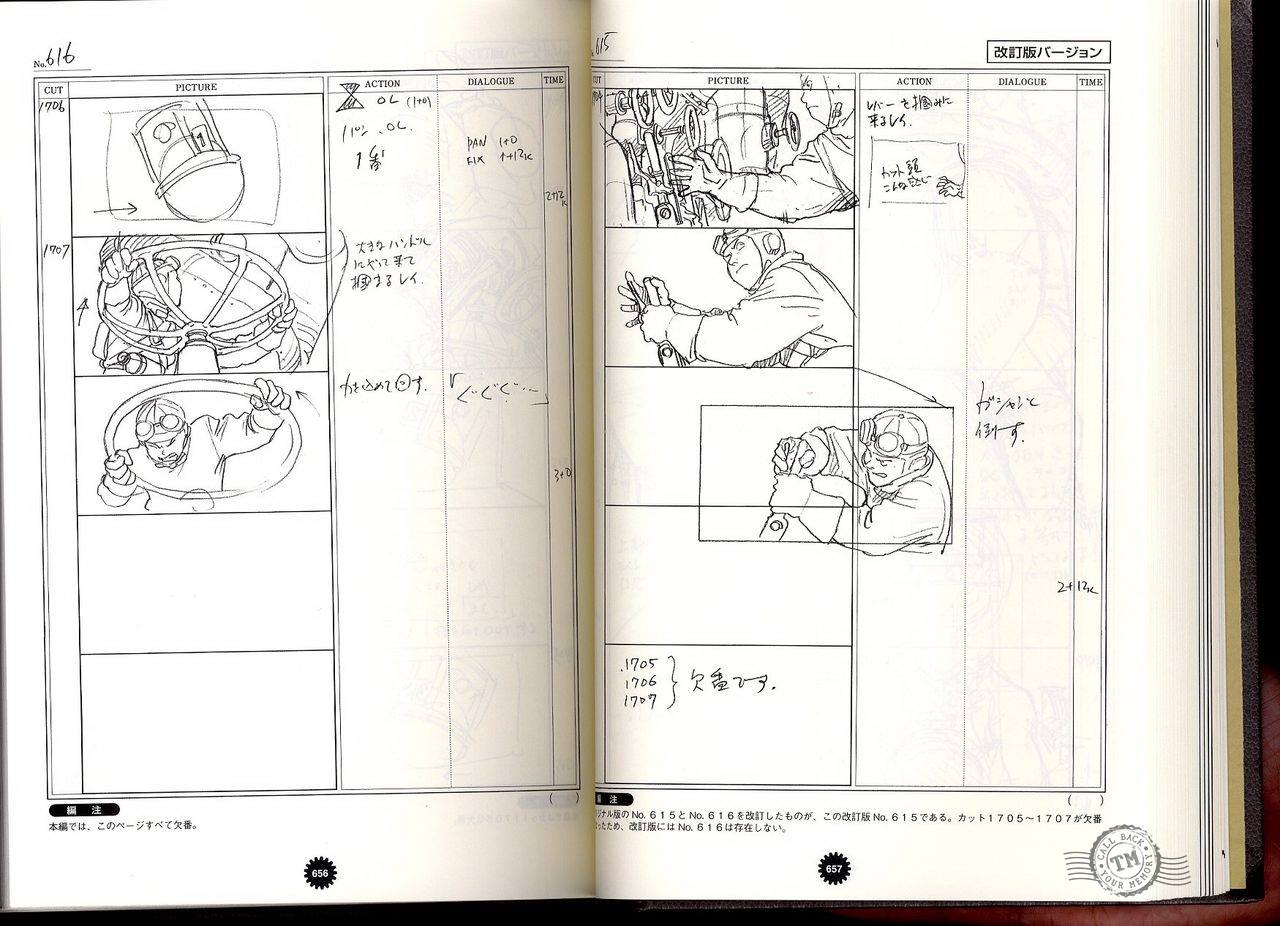 No.616
CUT
PICTURE
ACTION
DIALOGUE
TIME
1706
OL (1+0)
PAN 1+0
FIX 1+12K
1番
2+12K
1
1707
大きなハンドル
にやって来て
掴まるレイ.
力を込めて回す.
「ぐぐぐ…」
3+0
編 注
本編では、このページすべて欠番。
656
615
改訂版バージョン
CUT
PICTURE
ACTION
DIALOGUE
TIME
レバーを掴みに
来るレイ.
カット頭
こんな感じ
ガシャンと
倒す.
2+12K
1705
1706
1707
欠番です.
注
ジナル版のNo.615とNo.616を改訂したものが、この改訂版No.615である。カット1705〜1707が欠番
ったため、改訂版にはNo.616は存在しない。
657
CALL BACK
TM
YOUR MEMORY